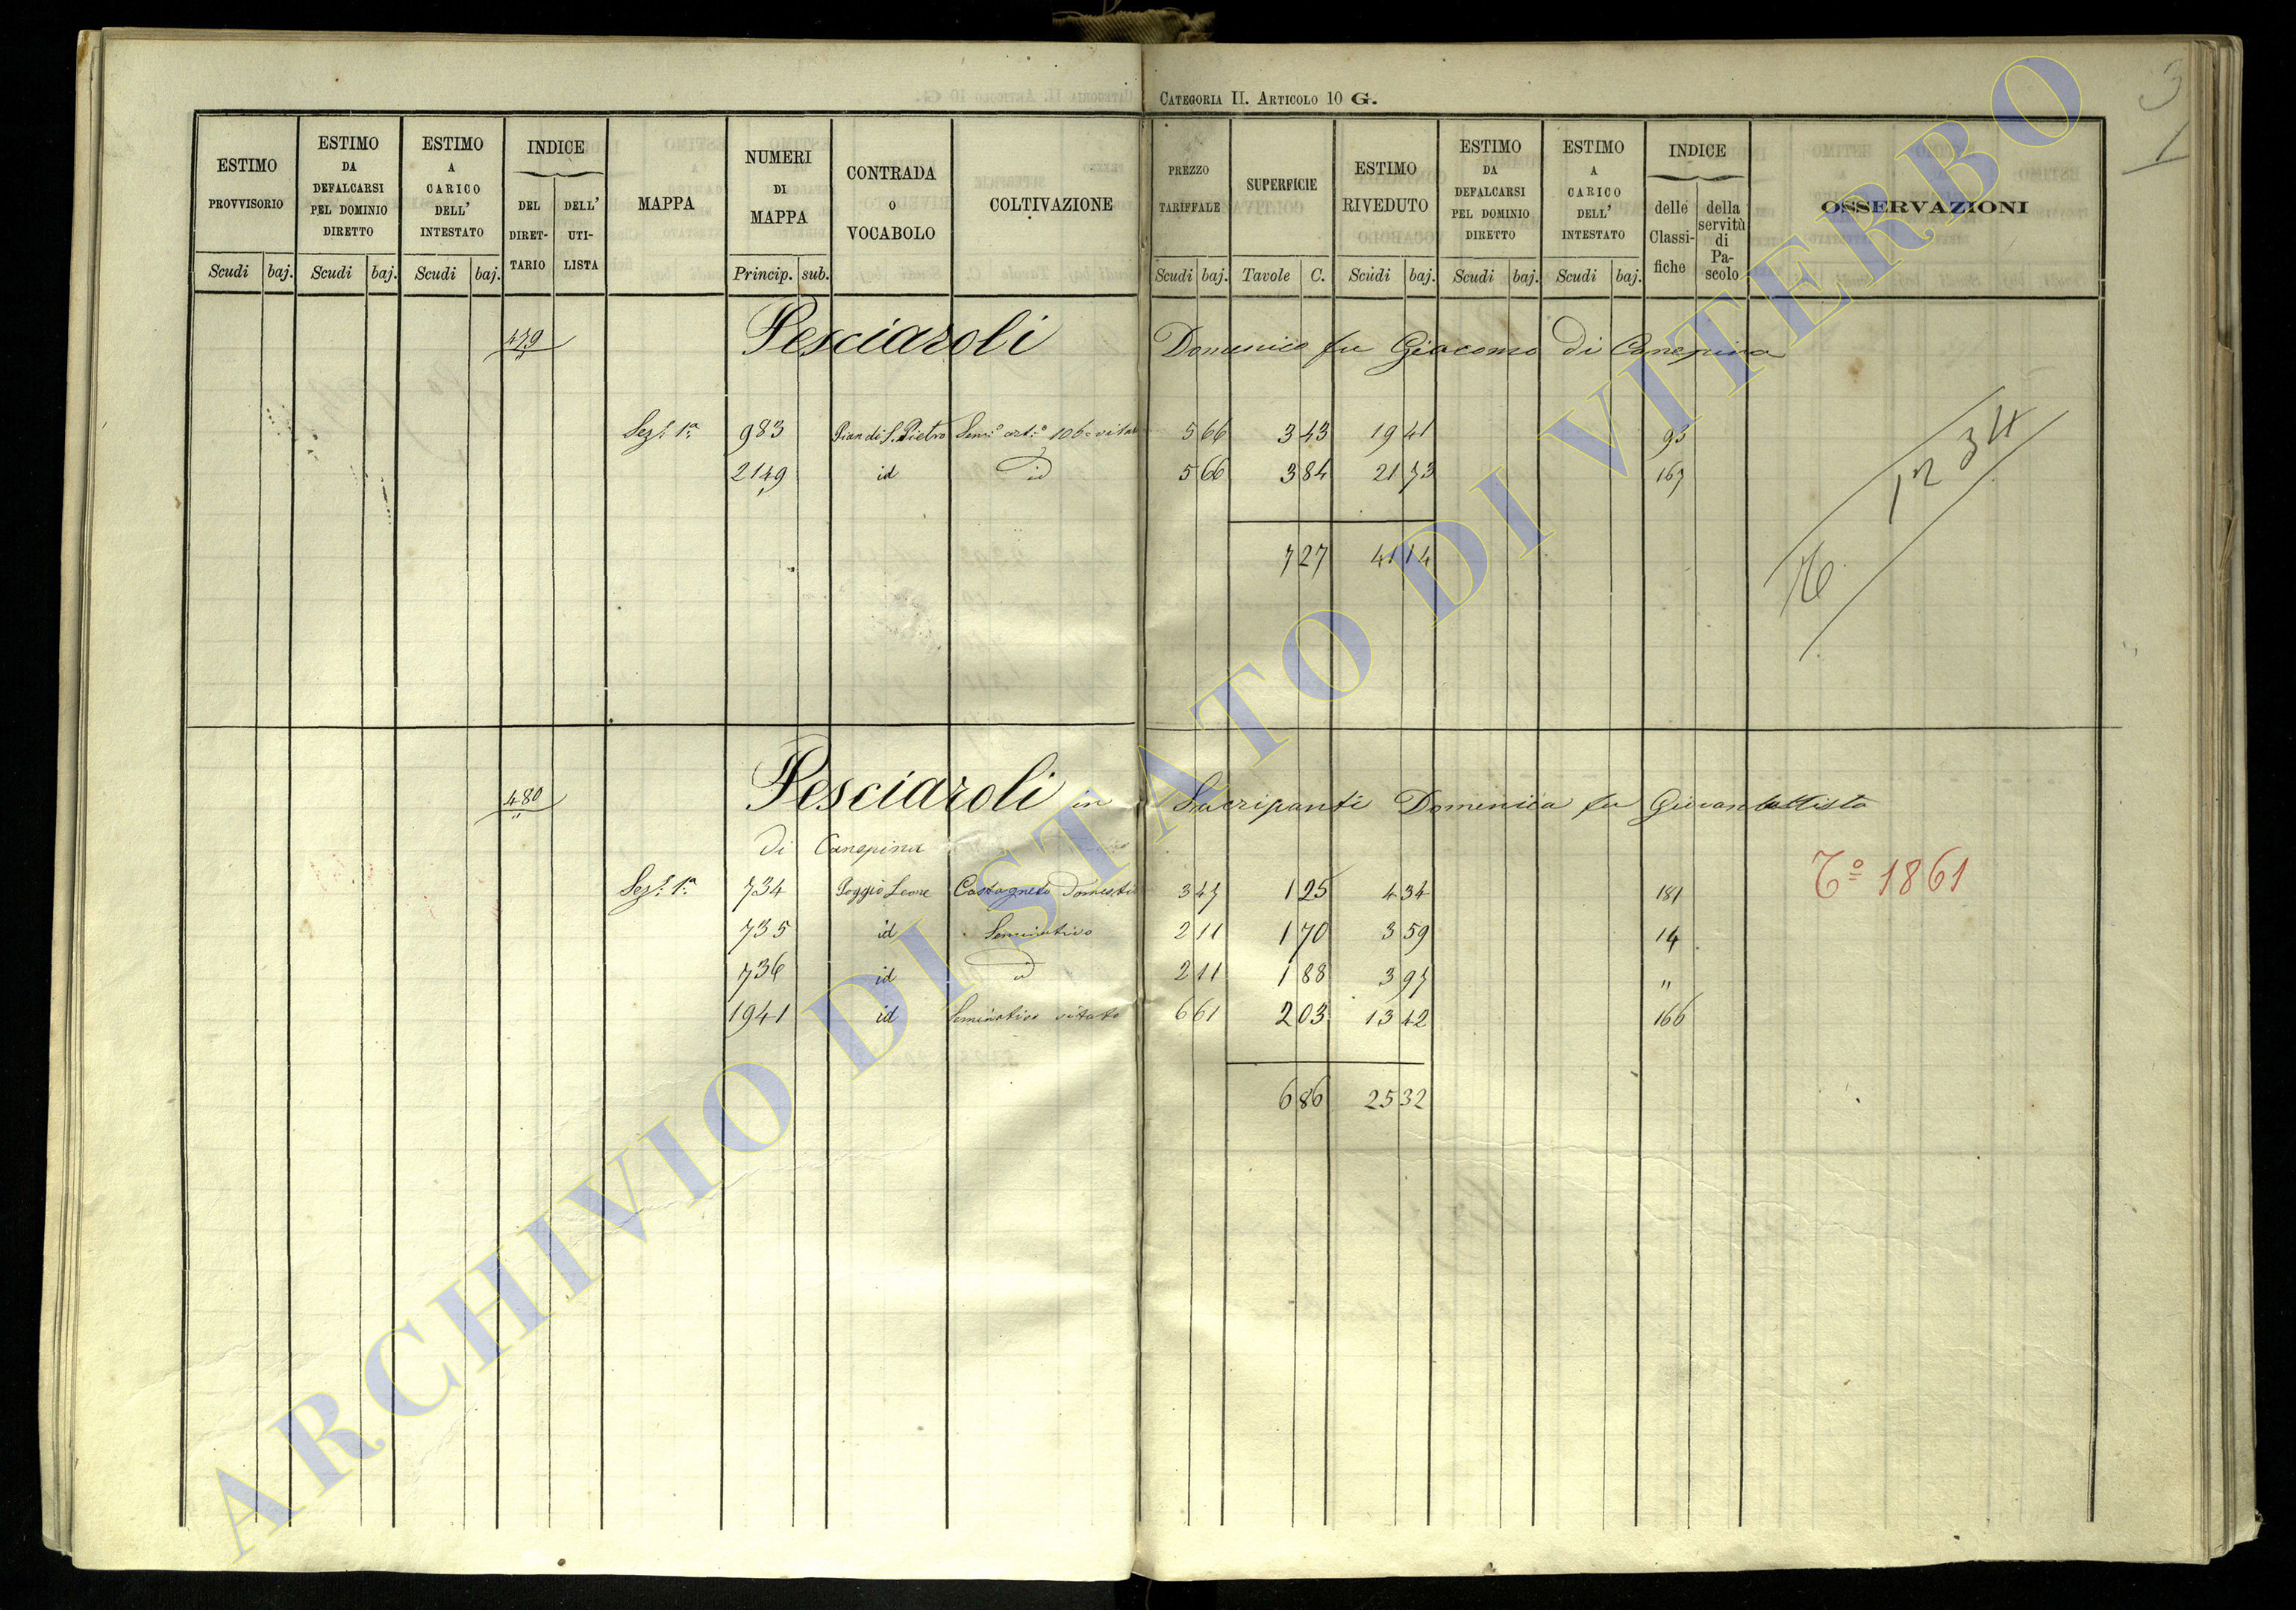 CATEGORIA II. ARTICOLO 10 G.
3
1
ESTIMO PROVVISORIO | ESTIMO DA DEFALCARSI PEL DOMINIO DIRETTO | ESTIMO A CARICO DELL' INTESTATO | INDICE DEL DIRET-TARIO | DELL' UTI-LISTA | MAPPA | NUMERI DI MAPPA | CONTRADA O VOCABOLO | COLTIVAZIONE | PREZZO TARIFFALE | SUPERFICIE | ESTIMO RIVEDUTO | ESTIMO DA DEFALCARSI PEL DOMINIO DIRETTO | ESTIMO A CARICO DELL' INTESTATO | INDICE delle Classi-fiche | della servitù di Pa-scolo | OSSERVAZIONI
Scudi baj. Scudi baj. Scudi baj. Princip. sub. Scudi baj. Tavole C. Scudi baj. Scudi baj. Scudi baj.
479 Pesciaroli Domenico fu Giacomo di Canepina
Sez. 1a 983 Pian di S. Pietro 106 vitato 5 66 3 43 19 41 93
2149 id id 5 66 3 84 21 73 167
1234
7 27 41 14
480 Pesciaroli in Sacripanti Domenica fu Giovanbattista
di Canepina
Sez. 1a 734 Poggio Leone Castagneto Domestico 3 47 1 25 4 34 181 To 1861
735 id Seminativo 2 11 1 70 3 59 14
736 id id 2 11 1 88 3 97 "
1941 id Seminativo vitato 6 61 2 03 13 42 166
6 86 25 32
ARCHIVIO DI STATO DI VITERBO